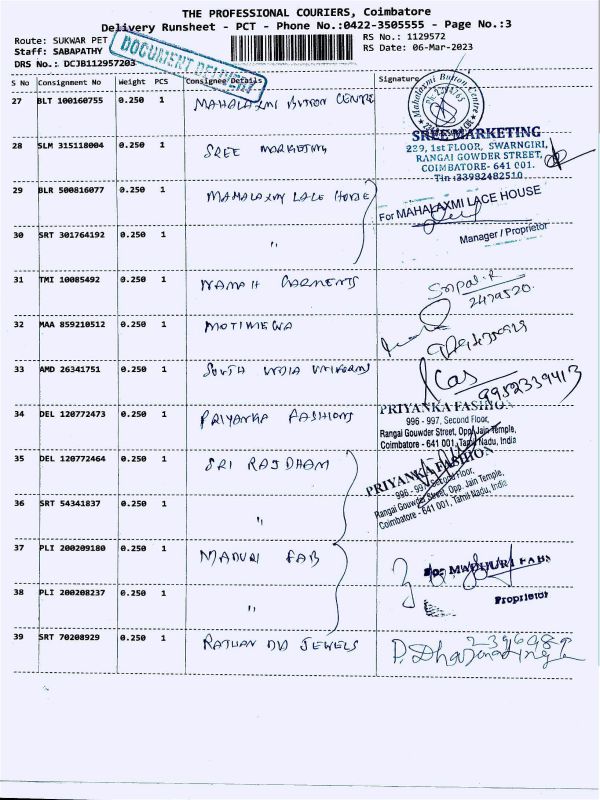 THE PROFESSIONAL COURIERS, Coimbatore
Delivery Runsheet - PCT - Phone No.:0422-3505555 - Page No.:3
Route: SUKWAR PET
RS No.: 1129572
Staff: SABAPATHY
RS Date: 06-Mar-2023
DRS No.: DCJB112957203
DOCUMENT DELIVERY
S No Consignment No Weight PCS Consignee Details Signature
27 BLT 100160755 0.250 1 MAHALAXMI BUTTON CENTRE
Mahalaxmi Button Centre
28 SLM 315118004 0.250 1 SREE MARKETING
SREE MARKETING
239, 1st FLOOR, SWARNGIRI,
RANGAI GOWDER STREET,
COIMBATORE- 641 001.
Tin :33982482510
29 BLR 500816077 0.250 1 MAHALAXMY LACE HOUSE
For MAHALAXMI LACE HOUSE
Manager / Proprietor
30 SRT 301764192 0.250 1 "
31 TMI 10085492 0.250 1 NAMAH GARMENTS
2479520
32 MAA 859210512 0.250 1 MOTIMEWA
33 AMD 26341751 0.250 1 SOUTH INDIA UNIFORM
9952339413
34 DEL 120772473 0.250 1 PRIYANKA FASHIONS
PRIYANKA FASHION
996 - 997, Second Floor,
Rangai Gouwder Street, Opp. Jain Temple,
Coimbatore - 641 001, Tamil Nadu, India
35 DEL 120772464 0.250 1 SRI RAJDHANI
PRIYANKA FASHION
996 - 997, Second Floor,
Rangai Gouwder Street, Opp. Jain Temple,
Coimbatore - 641 001, Tamil Nadu, India
36 SRT 54341837 0.250 1 "
37 PLI 200209180 0.250 1 MADURI FAB
For MADHURI FABS
Proprietor
38 PLI 200208237 0.250 1 "
39 SRT 70208929 0.250 1 JEWELS